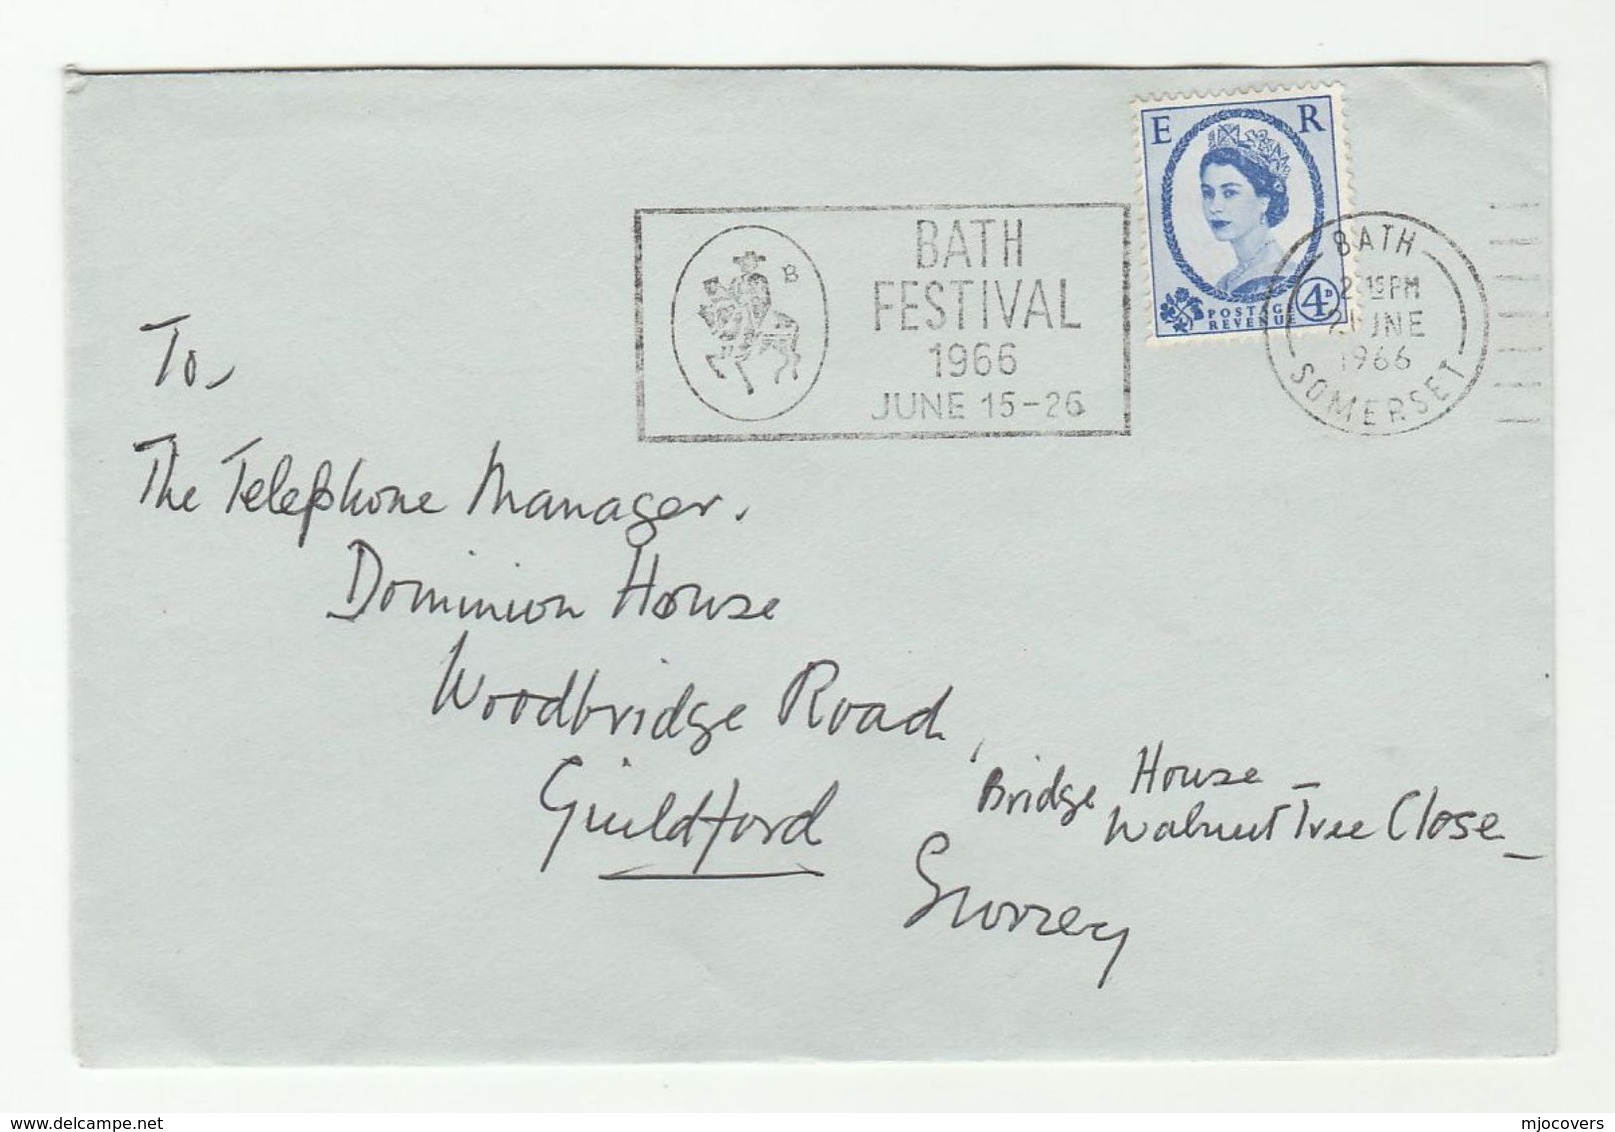 E R
POSTAGE
REVENUE
4D
B
BATH
FESTIVAL
1966
JUNE 15-26
BATH
PM
JNE
1966
SOMERSET
To,
The Telephone Manager.
Dominion House
Woodbridge Road,
Guildford
Bridge House –
Walnut Tree Close –
Surrey
delcampe.net
mjocovers